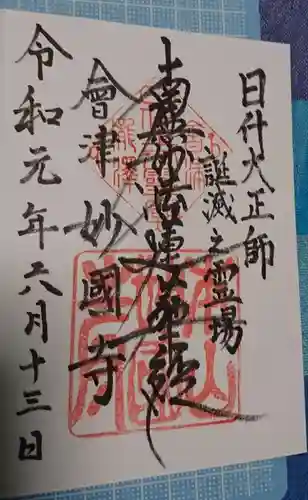 日什大正師
誕滅之霊場
南無妙法蓮華経
會津 妙國寺
令和元年六月十三日